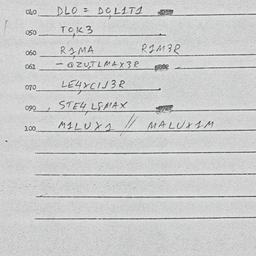 040 DLO = DO,L1T1
050 TO,K3
060 R1MA R1M3R
061 - QZU,TLMAX3R
070 LE4XCIJ3R
090 STE4,L8MAX
100 M1LUX1 // MALUX1M